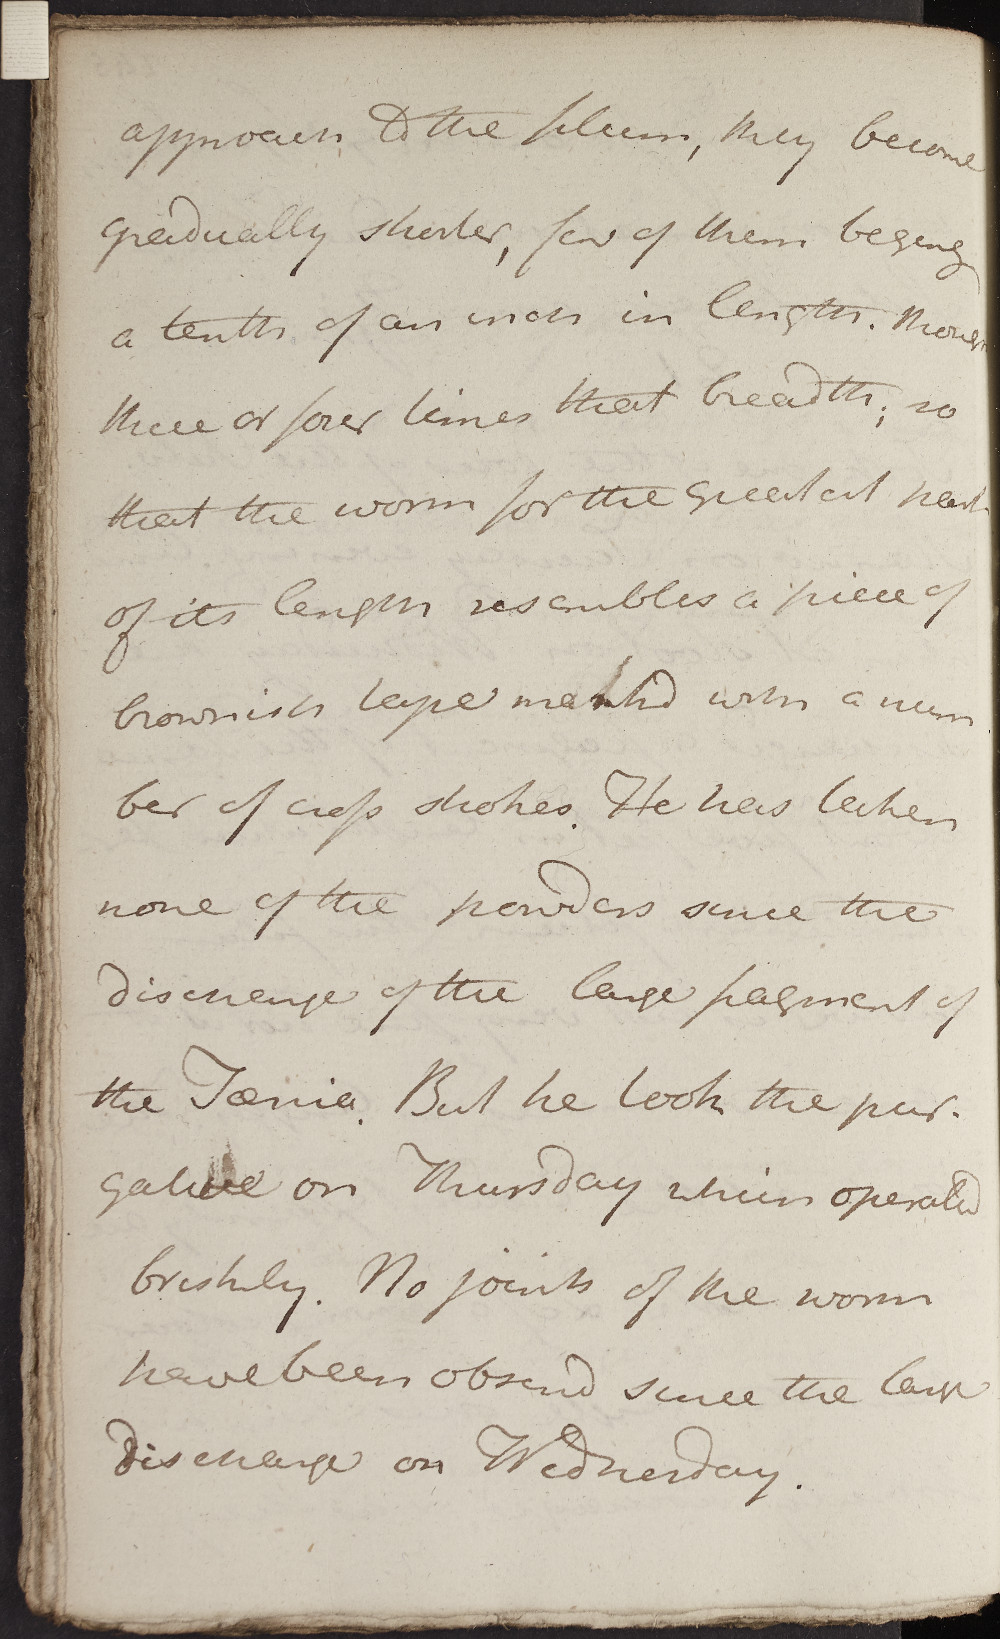 approach to the filum, they become
gradually shorter, few of them being
a tenth of an inch in length. though
three or four times that breadth; so
that the worm for the greatest part
of its length resembles a piece of
brownish tape marked with a num
ber of cross strokes. He has taken
none of the powders since the
discharge of the large fragment of
the Tænia. But he took the pur-
gative on Thursday which operated
briskly. No joints of the worm
have been observd since the large
discharge on Wednesday.